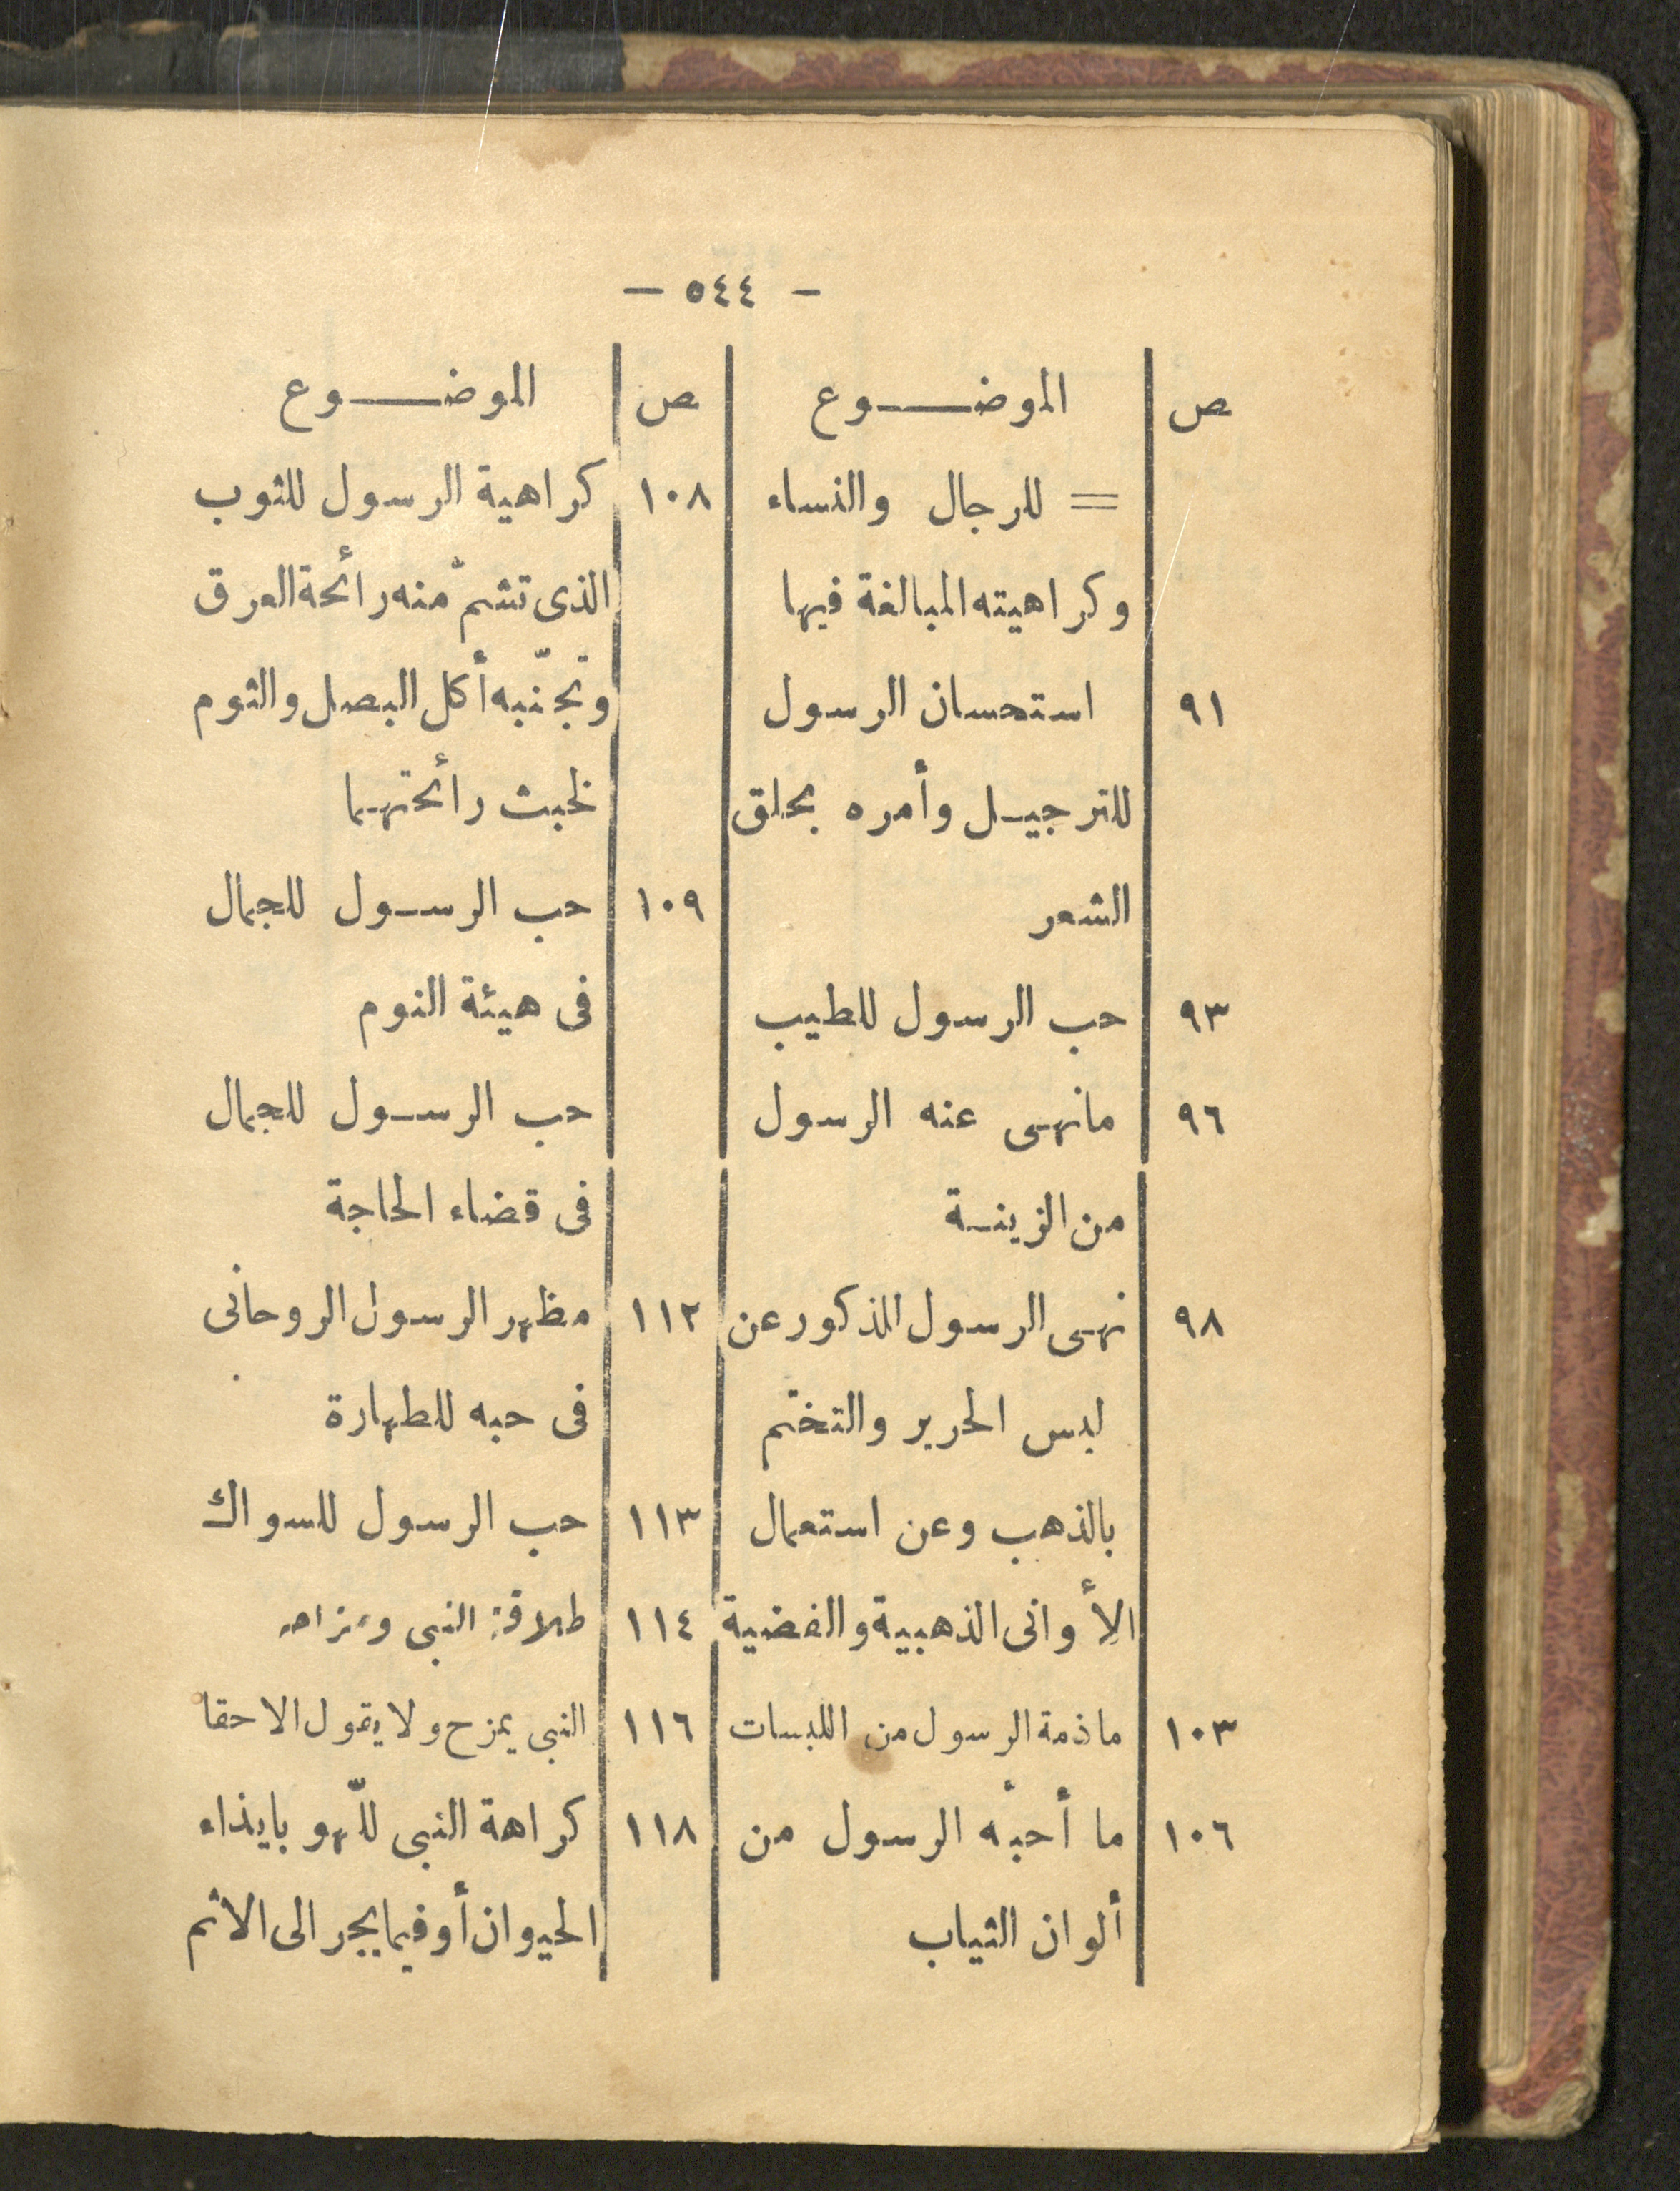 — ٥٤٤ —
ص الموضوع
= للرجال والنساء
وكراهيته المبالغة فيها
٩١ استحسان الرسول
للترجيل وأمره بحلق
الشعر
٩٣ حب الرسول للطيب
٩٦ مانهى عنه الرسول
من الزينة
٩٨ نهى الرسول المذكور عن
لبس الحرير والتختم
بالذهب وعن استعمال
الأوانى الذهبية والفضية
١٠٣ ماذمة الرسول من اللبسات
١٠٦ ما أحبّه الرسول من
ألوان الثياب
ص الموضوع
١٠٨ كراهية الرسول للثوب
الذى تشمّ منه رائحة العرق
وتجنّبه أكل البصل والثوم
لخبث رائحتهما
١٠٩ حب الرسول للجمال
فى هيئة النوم
حب الرسول للجمال
فى قضاء الحاجة
١١٢ مظهر الرسول الروحانى
فى حبه للطهارة
١١٣ حب الرسول للسواك
١١٤ طلاقة النبى ومزاحه
١١٦ النبى يمزح ولا يقول الا حقا
١١٨ كراهة النبى للّهو بايذاء
الحيوان أو فيما يجر الى الاثم